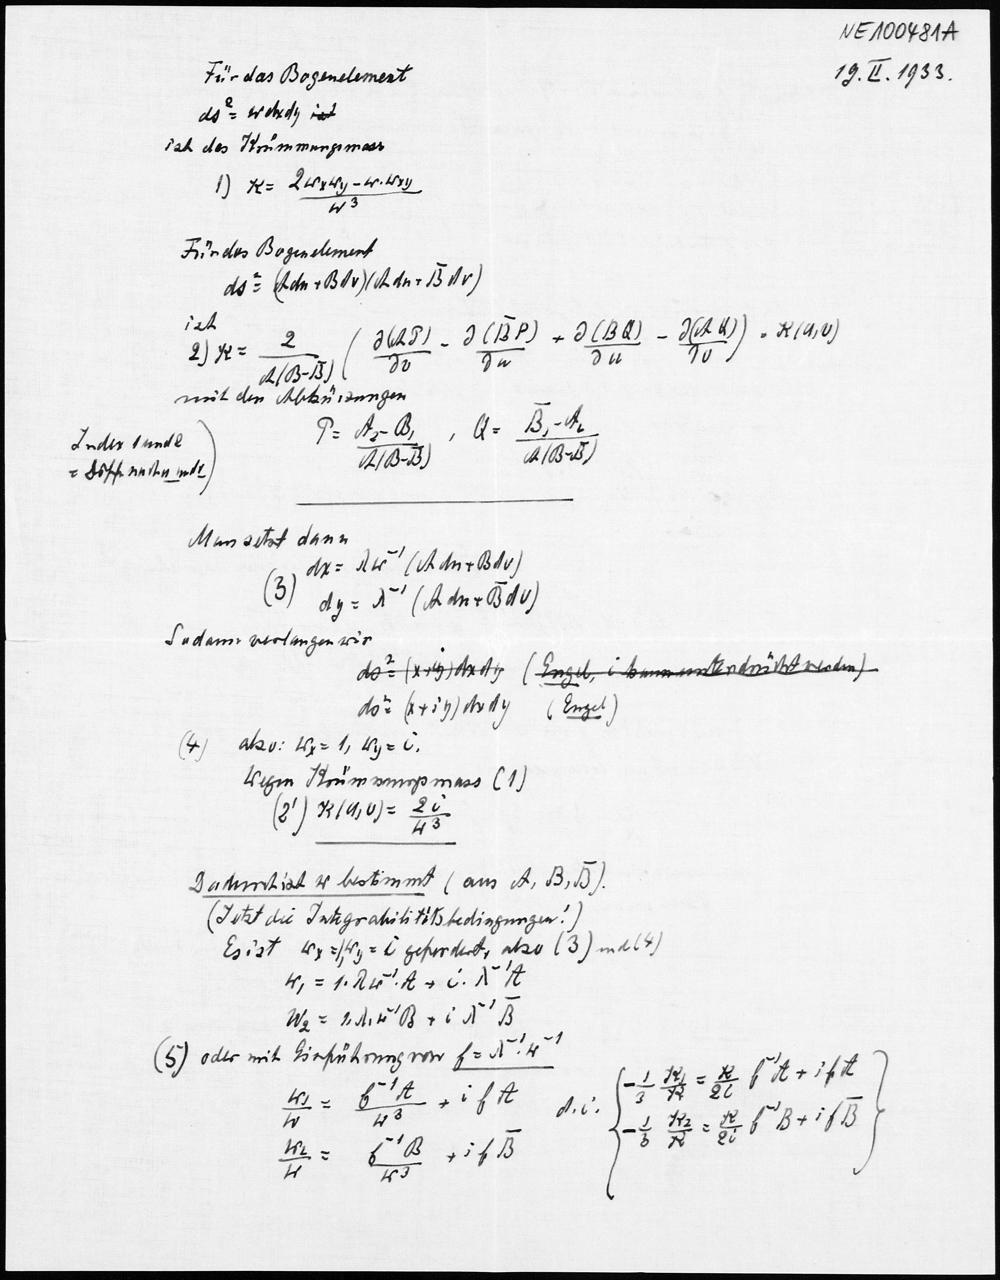 NE100481A
19. II. 1933.
Für das Bogenelement
ds² = w dx dy ist
ist das Krümmungsmass
1) K = (2 w_x w_y − w · w_xy) / w³
Für das Bogenelement
ds² = (A du + B dv)(A du + B̄ dv)
ist
2) K = 2 / (A(B−B̄)) ( ∂(AP)/∂v − ∂(B̄P)/∂u + ∂(BQ)/∂u − ∂(AQ)/∂v ) = K(u,v)
mit den Abkürzungen
P = (A₂ − B₁) / (A(B−B̄)) , Q = (B̄₁ − A₂) / (A(B−B̄))
Index 1 und 2
= Diff. nach u und v )
Man setzt dann
(3) dx = λ w⁻¹ (A du + B dv)
dy = λ⁻¹ (A du + B̄ dv)
Sodann verlangen wir
ds² = (x+iy) dx dy (Engel, i kann unterdrückt werden)
ds² = (x+iy) dx dy (Engel)
(4) also: w_x = 1, w_y = i.
Wegen Krümmungsmass (1)
(2') K(u,v) = 2i / w³
Dadurch ist w bestimmt (aus A, B, B̄).
(Jetzt die Integrabilitätsbedingungen!)
Es ist w_x = 1, w_y = i gefordert, also (3) und (4)
w₁ = 1·λ w⁻¹·A + i·λ⁻¹A
w₂ = 1·λ·w⁻¹B + i λ⁻¹B̄
(5) oder mit Einführung von f = λ⁻¹·w⁻¹
w₁/w = f⁻¹A / w³ + i f A
d.i. { −1/3 K₁/K = K/2i f⁻¹A + i f A
w₂/w = f⁻¹B / w³ + i f B̄
−1/3 K₂/K = K/2i f⁻¹B + i f B̄ }